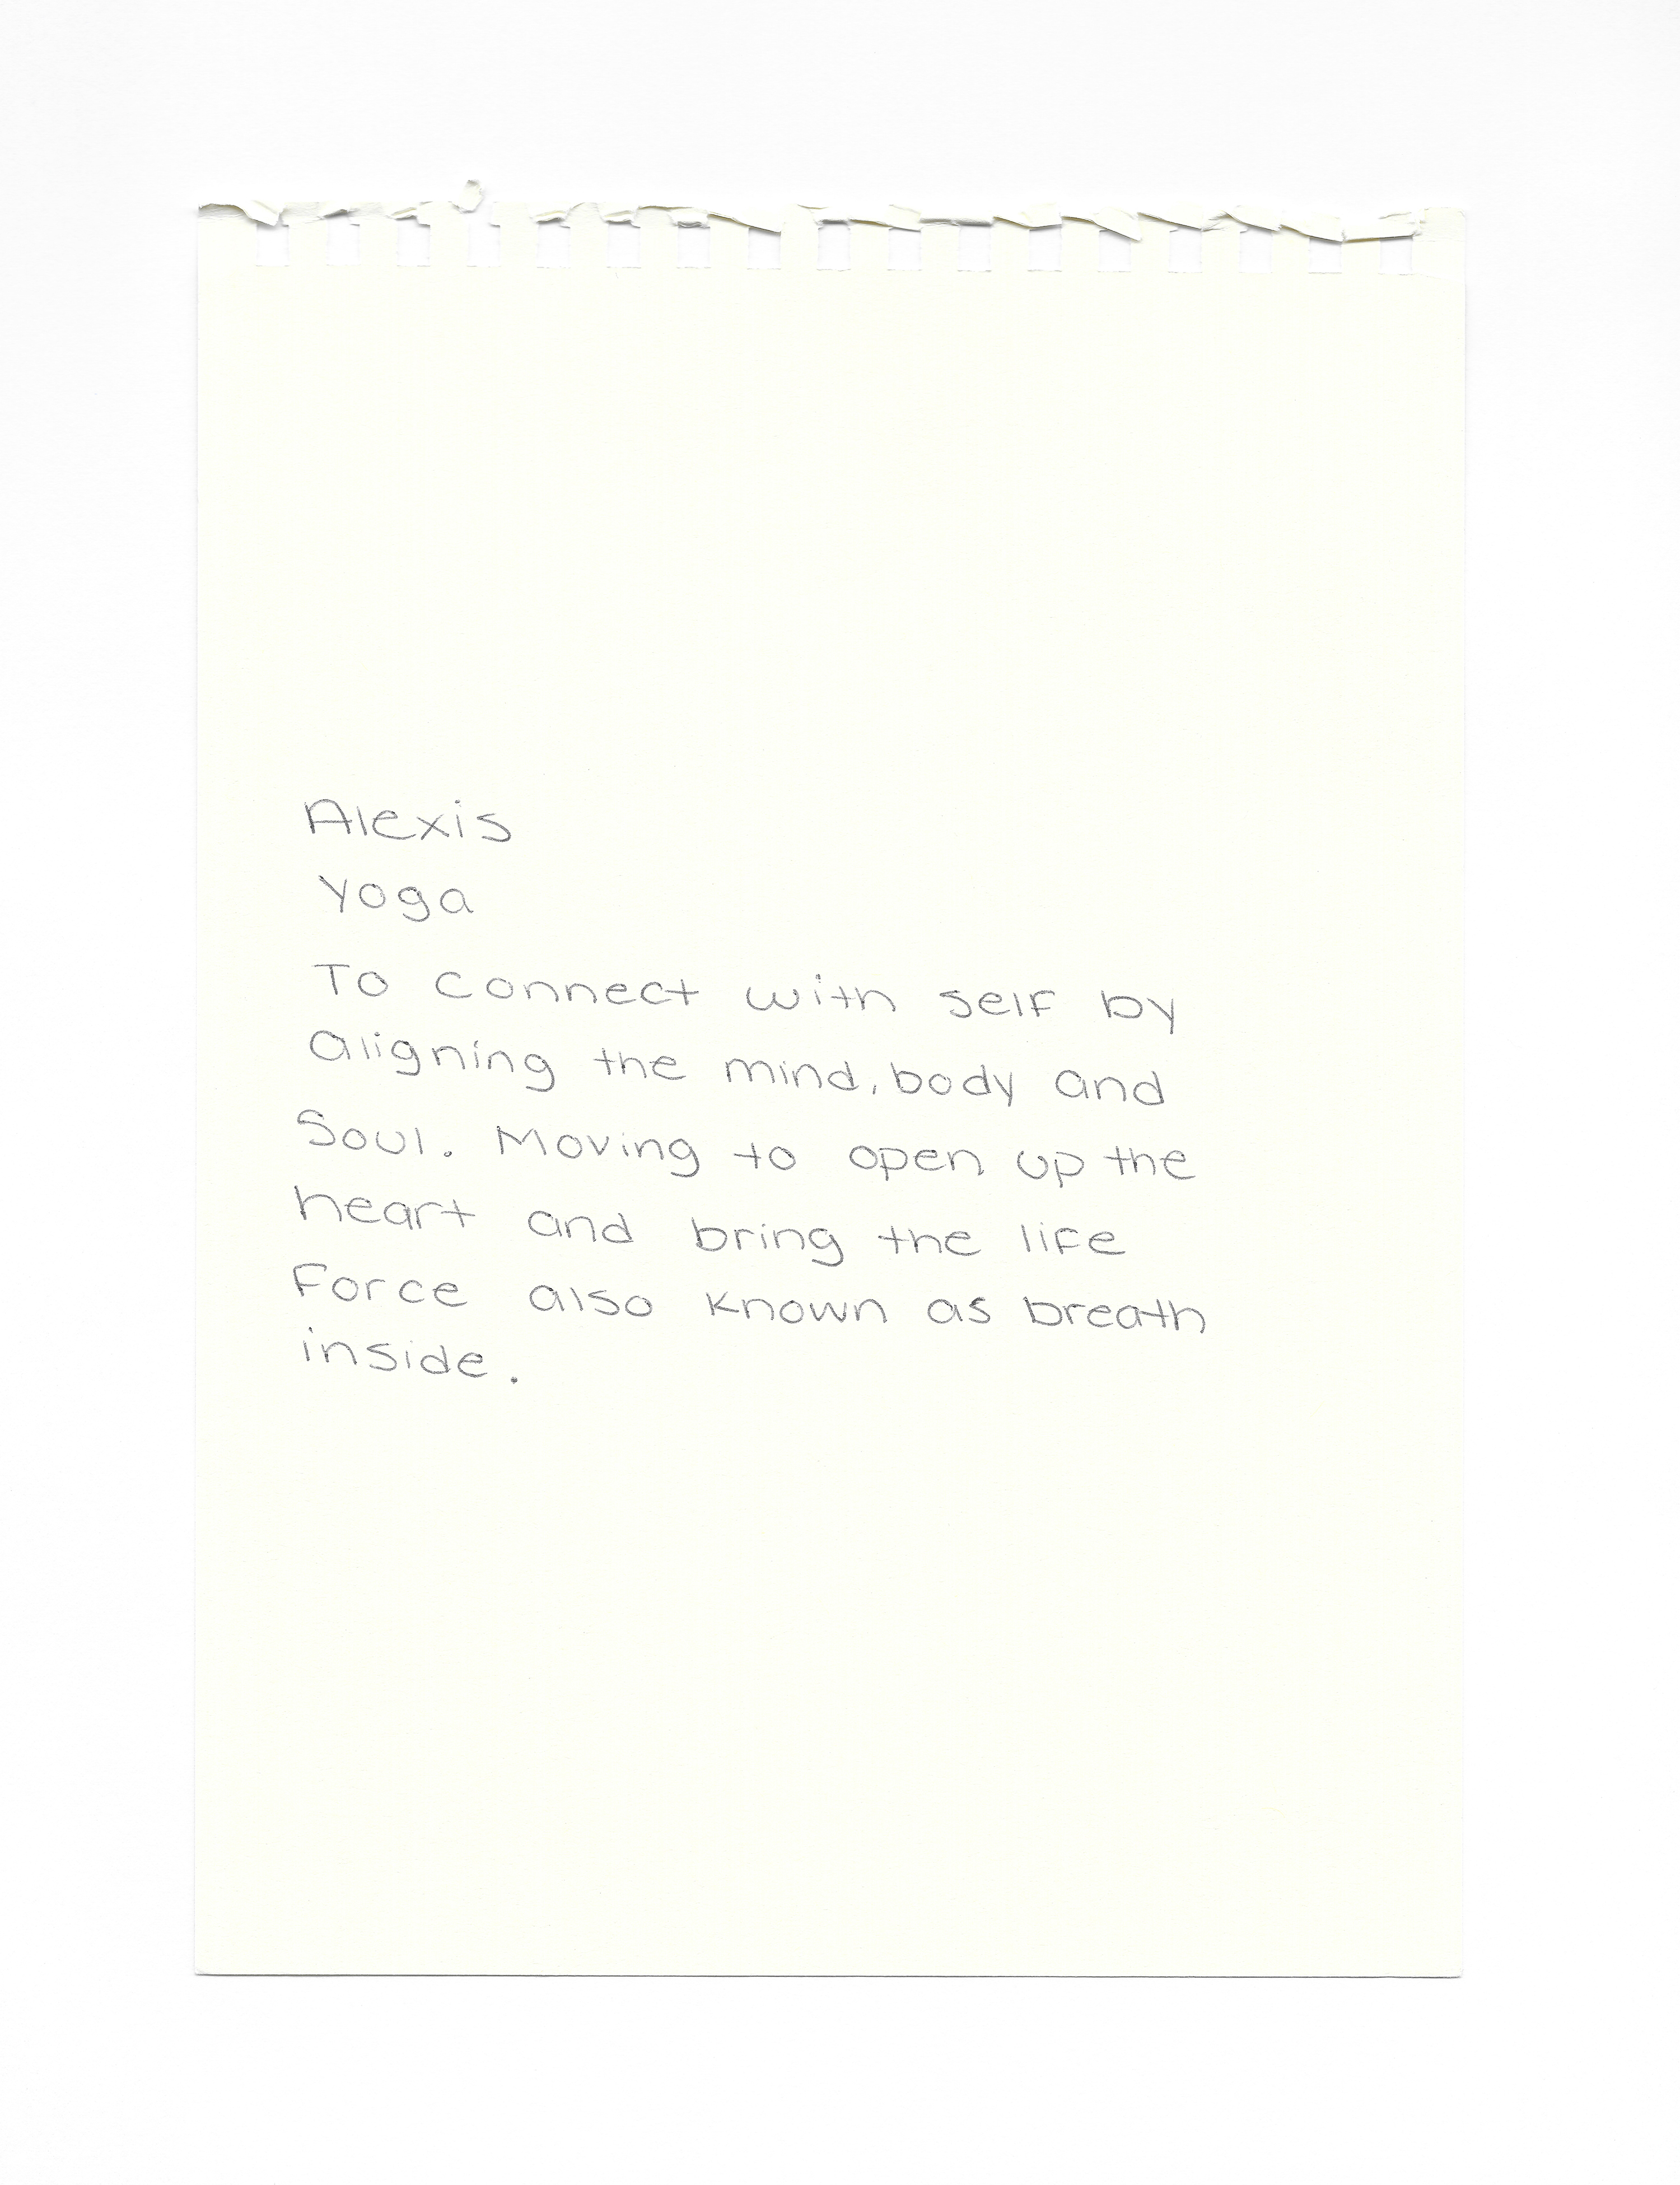 Alexis
Yoga
To connect with self by
aligning the mind, body and
Soul. Moving to open up the
heart and bring the life
Force also known as breath
inside.